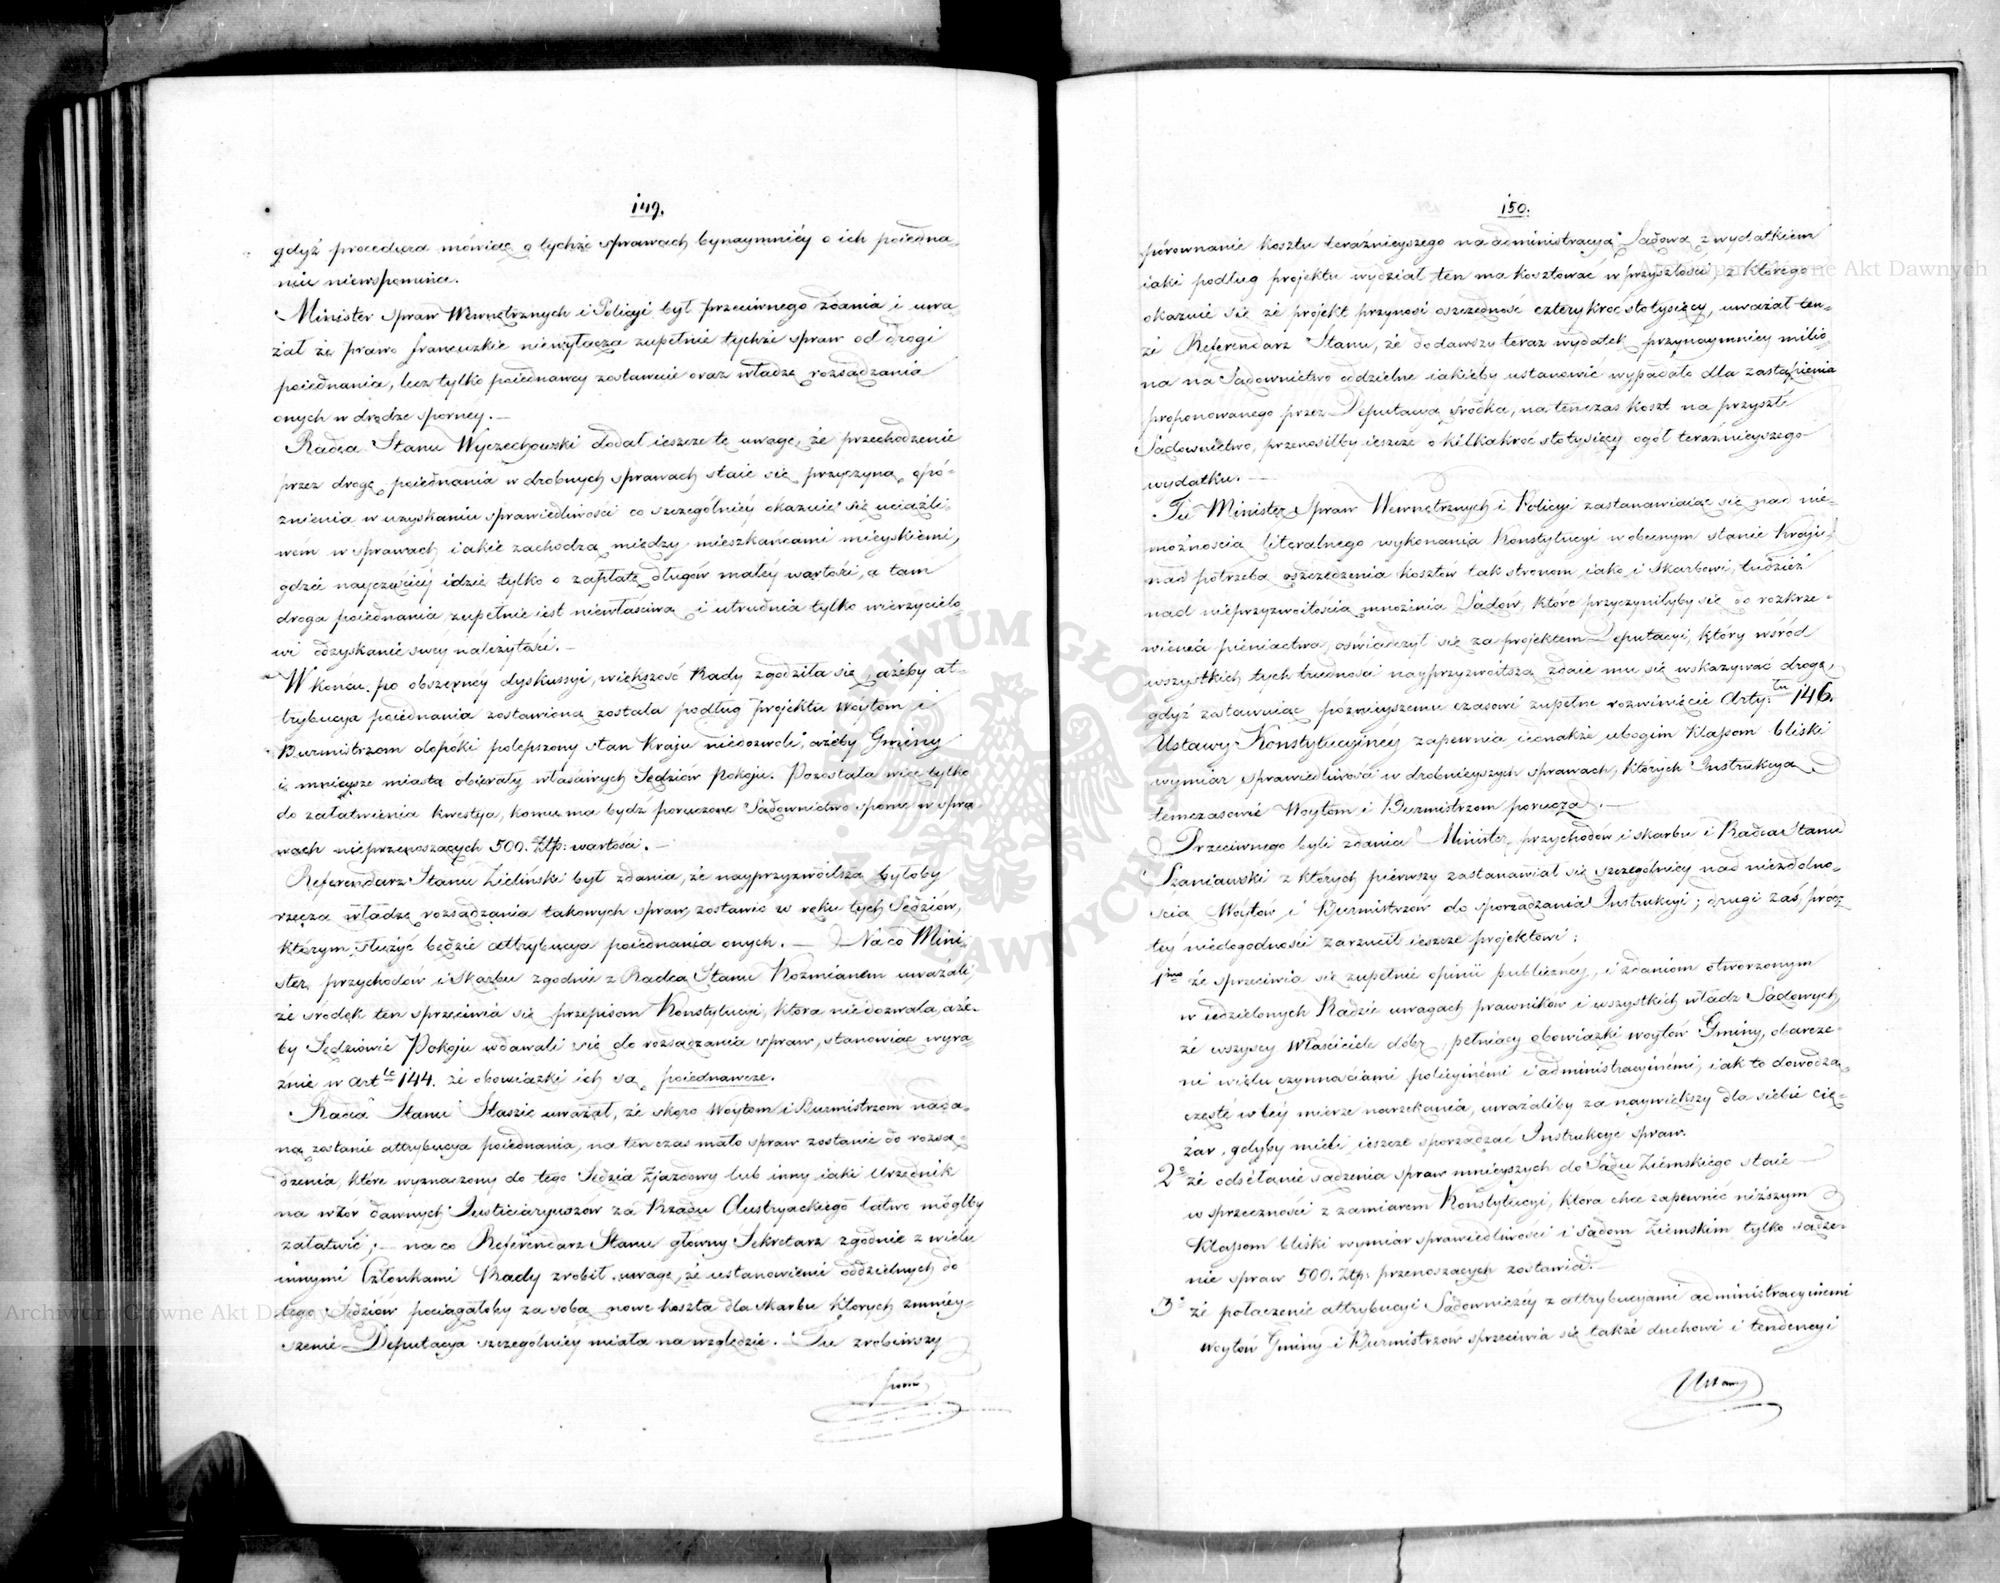 149.
gdyż procedura mówiąc o tychże sprawach bynaymniéy o ich poiedna-
niu niewspomina.
Minister Spraw Wewnętrznych i Policyi był przeciwnego zdania i uwa-
żał że prawo francuzkie niewyłącza zupełnie tychże spraw od drogi
poiednania, lecz tylko poiednawcy zostawuie oraz władzę rozsądzania
onych w drodze sporney. —
Radca Stanu Wyczechowski dodał ieszcze tę uwagę, że przechodzenie
przez drogę poiednania w drobnych sprawach staie się przyczyną opó-
znienia w uzyskaniu sprawiedliwości co szczególniéy okazuie się uciążli-
wem w sprawach iakie zachodzą między mieszkańcami mieyskiemi,
gdzie nayczęściéy idzie tylko o zapłatę długów małéy wartości, a tam
droga poiednania zupełnie iest niewłaściwą i utrudnia tylko wierzycielo-
wi odzyskanie swéy należytości. —
W końcu po obszerney dyskussyi, większość Rady zgodziła się, ażeby at-
trybucya poiednania zostawioną została podług projektu Woytom i
Burmistrzom dopóki polepszony stan Kraju niedozwoli, ażeby Gminy
i mnieysze miasta obierały właściwych Sędziów Pokoju. Pozostała więc tylko
do załatwienia kwestya, komu ma bydź poruczone Sądownictwo sporne w spra-
wach nieprzenoszących 500. Złp: wartości. —
Referendarz Stanu Zieliński był zdania, że nayprzyzwoitszą byłoby
rzeczą władzę rozsądzania takowych spraw zostawić w ręku tych Sędziów,
którym służyć będzie attrybucya poiednania onych. — Na co Mini-
ster przychodów i Skarbu zgodnie z Radcą Stanu Koźmianem uważali,
że środek ten sprzeciwia się przepisom Konstytucyi, która niedozwala, aże-
by Sędziowie Pokoju wdawali się do rozsądzania spraw, stanowiąc wyra-
źnie w Art:le 144. że obowiązki ich są poiednawcze.
Radca Stanu Staszic uważał, że skoro Woytom i Burmistrzom nada-
ną zostanie attrybucya poiednania, na ten czas mało spraw zostanie do rozsą-
dzenia, które wyznaczony do tego Sędzia Zjazdowy lub inny iaki Urzędnik
na wzór dawnych Justiciaryuszów za Rządu Austryackiego łatwo mógłby
załatwić; — na co Referendarz Stanu główny Sekretarz zgodnie z wielu
innymi Członkami Rady zrobił uwagę, że ustanowienie oddzielnych do
tego Sędziów pociągałoby za sobą nowe koszta dla Skarbu których zmniey-
szenie Deputacya szczególniéy miała na względzie. Tu zrobiwszy
150.
porównanie kosztu teraźnieyszego na administracyą Sądową z wydatkiem
iaki podług projektu wydział ten ma kosztować w przyszłości, z którego
okazuie się że projekt przynosi oszczędność czterykroć stotysięcy, uważał ten-
że Referendarz Stanu, że dodawszy teraz wydatek przynaymniéy milio-
na na Sądownictwo oddzielne iakieby ustanowić wypadało dla zastąpienia
proponowanego przez Deputacyą środka, na tenczas koszt na przyszłe
Sądownictwo, przenosiłby ieszcze o kilkakroć stotysięcy ogół teraźnieyszego
wydatku. —
Tu Minister Spraw Wewnętrznych i Policyi zastanawiaiąc się nad nie-
możnością literalnego wykonania Konstytucyi w obecnym stanie Kraju,
nad potrzebą oszczędzenia kosztów tak stronom iako i Skarbowi, tudzież
nad nieprzyzwoitością mnożenia Sądów, które przyczyniłyby się do rozkrze-
wienia pieniactwa, oświadczył się za projektem Deputacyi, który wśród
wszystkich tych trudności nayprzyzwoitszą zdaie mu się wskazywać drogę,
gdyż zostawuiąc poznieyszemu czasowi zupełne rozwinięcie Arty:łu 146.
Ustawy Konstytucyinéy zapewnia iednakże ubogim Klassom bliski
wymiar sprawiedliwości w drobnieyszych sprawach, których Instrukcya
temczasowie Woytom i Burmistrzom porucza. —
Przeciwnego byli zdania Minister przychodów i skarbu i Radca Stanu
Szaniawski z których pierwszy zastanawiał się szczególniéy nad niezdolno-
ścią Woytów i Burmistrzów do sporządzania Instrukcyi; drugi zaś, prócz
tey niedogodności zarzucił ieszcze projektowi:
1mo że sprzeciwia się zupełnie opinii publicznéy, i zdaniom otworzonym
w udzielonych Radzie uwagach prawników i wszystkich władz Sądowych,
że wszyscy Właściciele dóbr, pełniący obowiązki woytów Gminy, obarcze-
ni wielu czynnościami policyinémi i administracyinémi, iak to dowodzą
częste w téy mierze narzekania, uważaliby za naywiększy dla siebie cię-
żar, gdyby mieli ieszcze sporządzać Instrukcye spraw.
2e że odsełanie sądzenia spraw mnieyszych do Sądu Ziemskiego staie
w sprzeczności z zamiarem Konstytucyi, która chce zapewnić niższym
Klassom bliski wymiar sprawiedliwości i Sądom Ziemskim tylko sądze-
nie spraw 500. Złp: przenoszących zostawia. —
3o że połączenie attrybucyi Sądowniczéy z attrybucyami administracyinemi
Woytów Gminy i Burmistrzów sprzeciwia się także duchowi i tendencyi
Ustawy